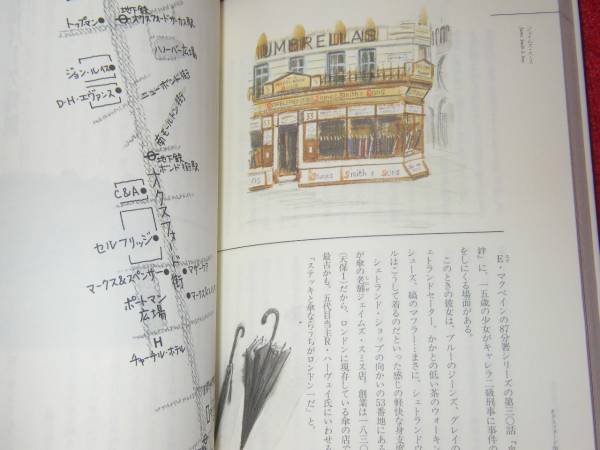 トップマン
地下鉄
オクスフォード・サーカス駅
ハノーバー広場
ジョン・ルイス
D・H・エヴァンス
ニューボンド街
南モルトン街
地下鉄
ボンド街駅
C&A
オクスフォード街
セルフリッジ
マークス&スペンサー
マザーケア
ポートマン
広場
H
チャーチル・ホテル
UMBRELLAS
James Smith & Sons
E・マクベインの87分署シリーズの第三〇話『
絆』に、一五歳の少女がキャレラ二級刑事に事件の
をしにくる場面がある。
このときの彼女は、ブルーのジーンズ、グレイの
ェトランドセーター、かかとの低い茶のウォーキン
シューズ、縞のマフラー…まさに、シェトランドウ
ルはこうして着るのだといった感じの軽快な身支度
シェトランド・ショップの向かいの53番地にある
が傘の老舗ジェイムズ・スミス店。創業は一八三〇
(天保1)だから、ロンドンに現存している傘の店で
最古かも。五代目当主R・ハーヴェイ氏にいわせる
「ステッキと傘ならうちがロンドン一だ」と。